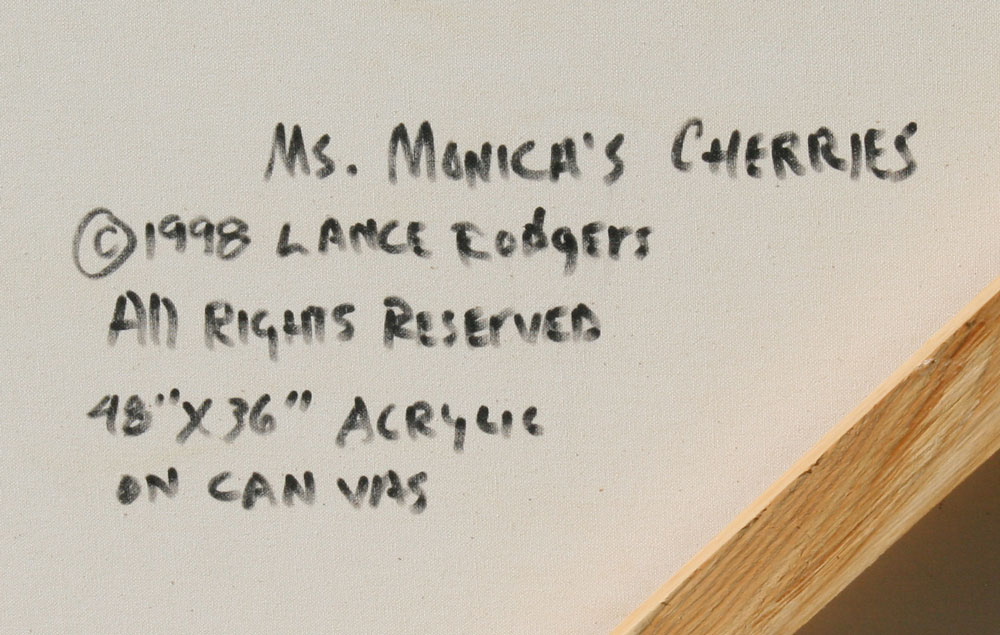 Ms. Monica's Cherries
©1998 Lance Rodgers
All Rights Reserved
48"X36" Acrylic
on Canvas